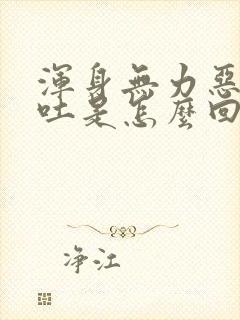 渾身無力惡
吐是怎麼回
净江